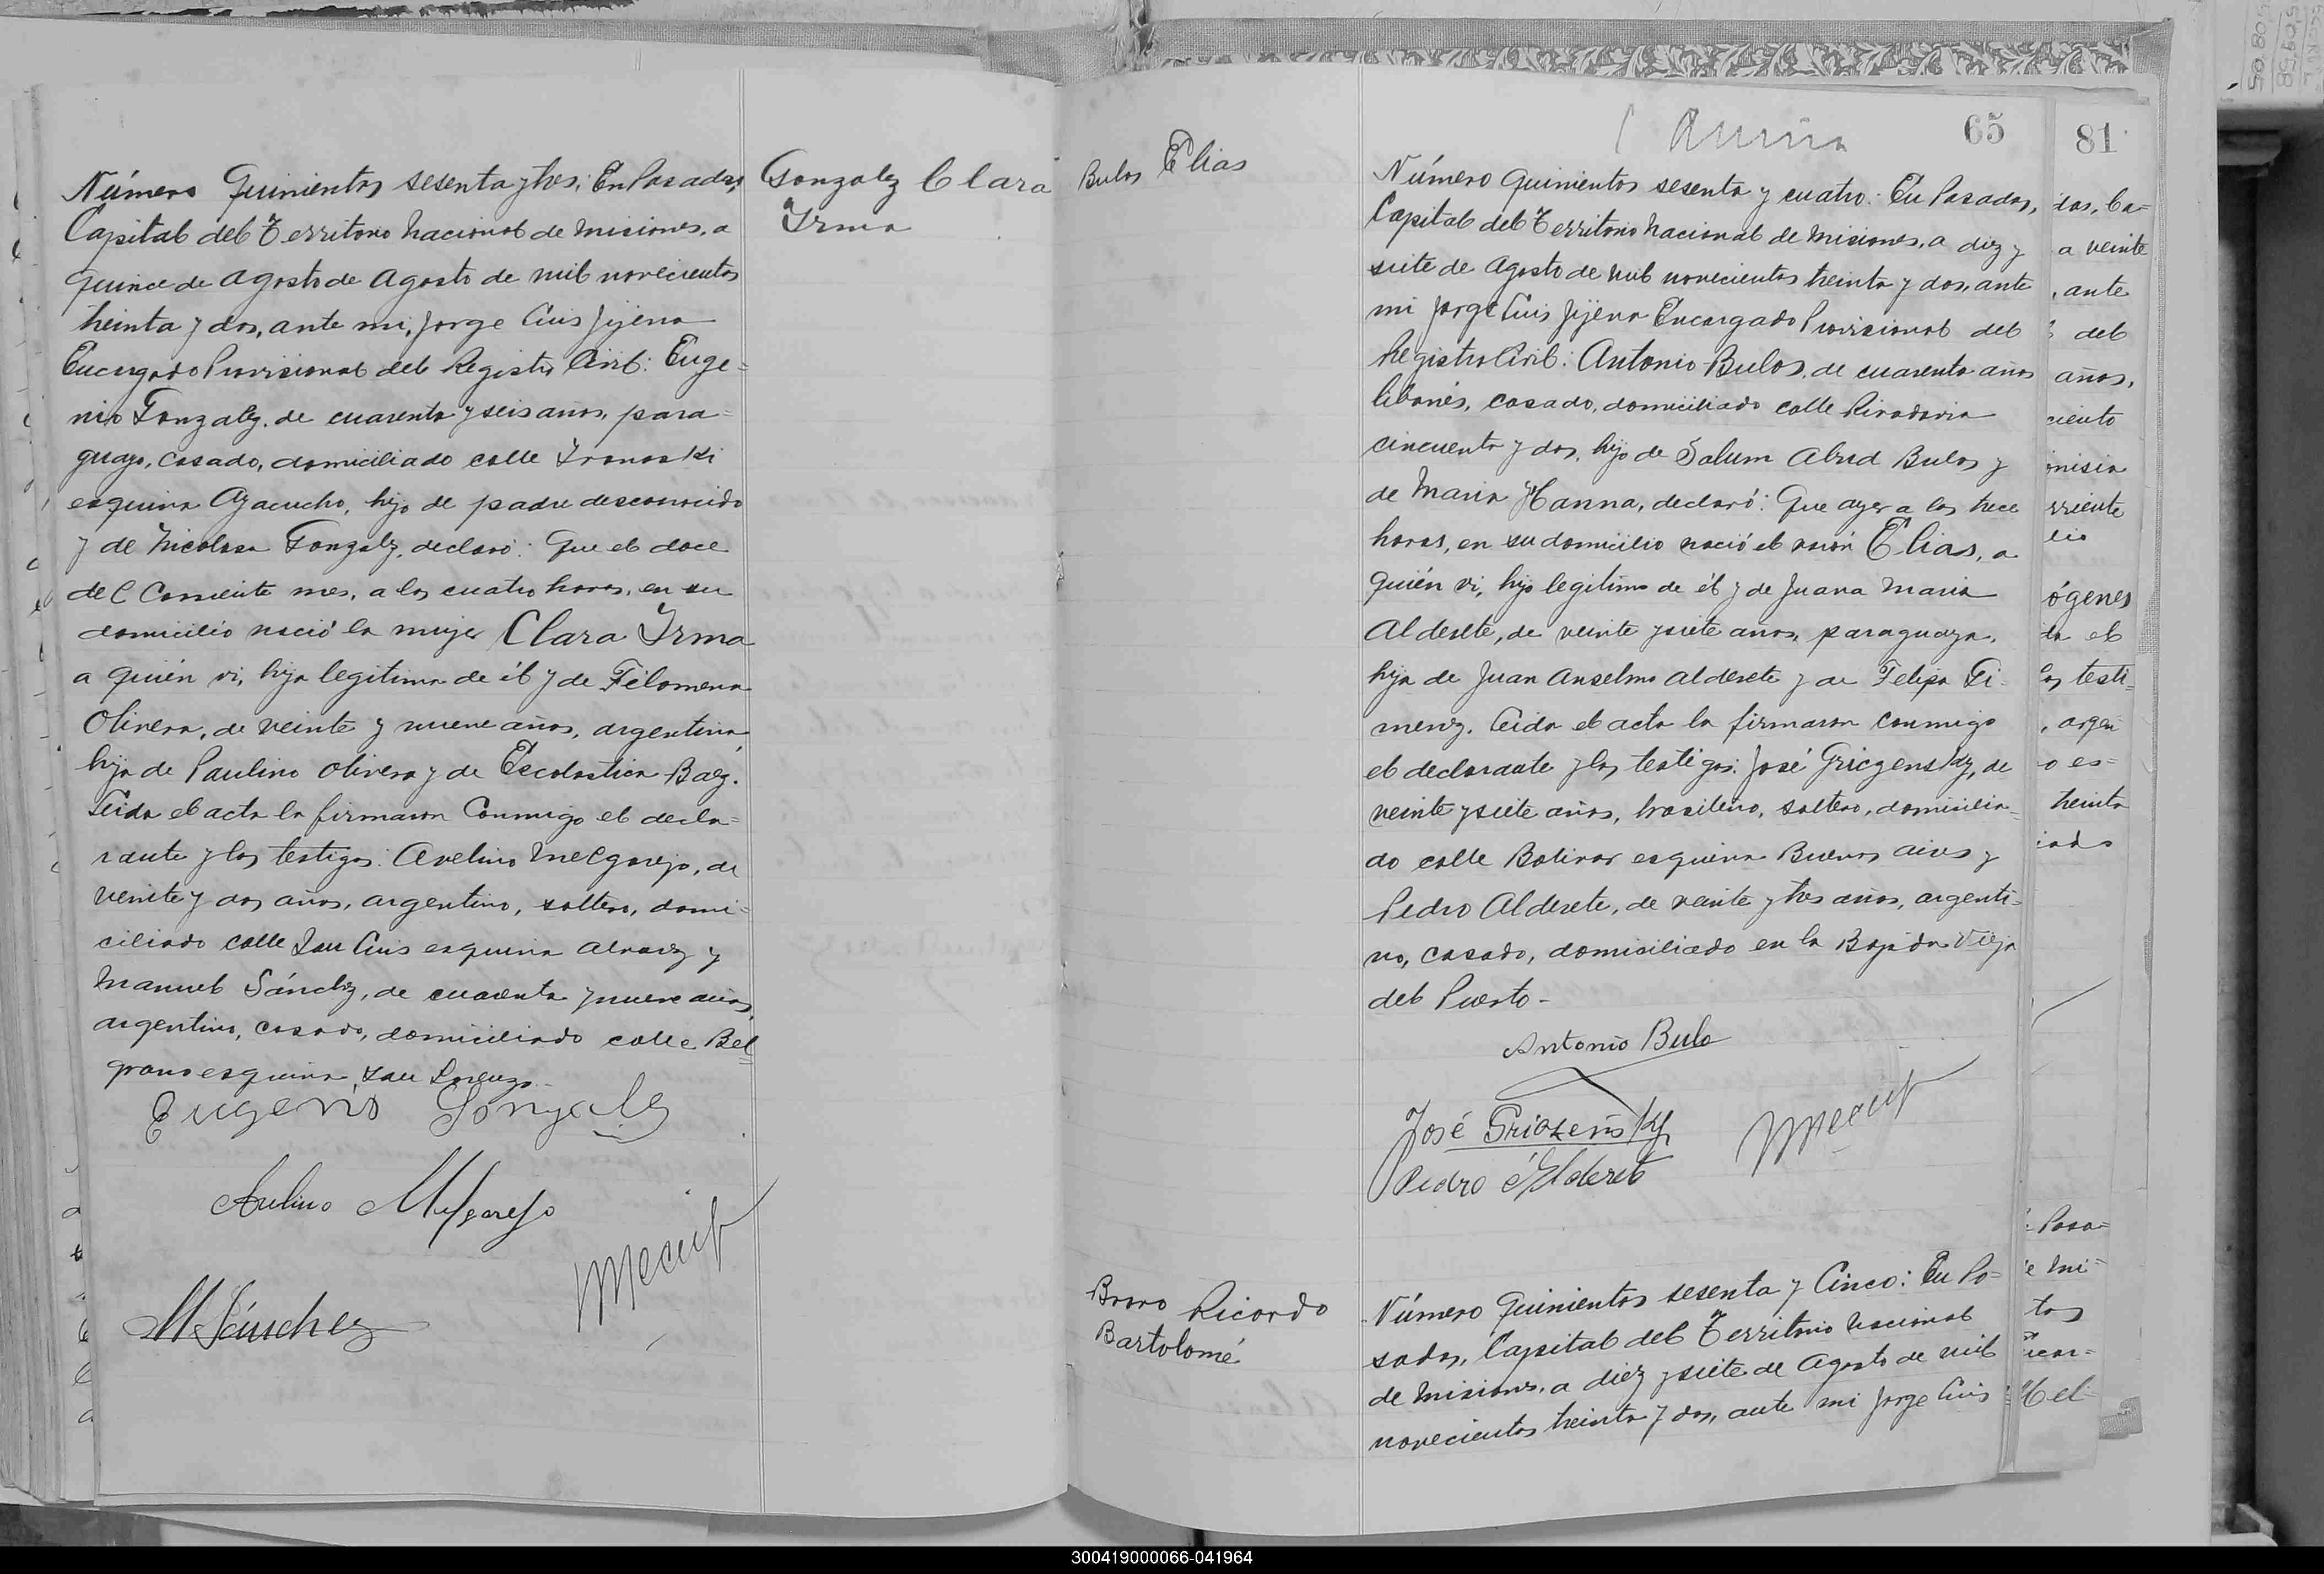 Número Quinientos sesenta y tres: En Posadas,
Capital del Territorio Nacional de Misiones, a
quince de Agosto de Agosto de mil novecientos
treinta y dos, ante mi, Jorge Luis Jijena
Encargado Provisional del Registro Civil: Euge=
nio Gonzalez, de cuarenta y seis años, para=
guayo, casado, domiciliado calle
esquina Ayacucho, hijo de padre desconocido
y de Nicolasa Gonzalez, declaró: Que el doce
del Corriente mes, a las cuatro horas, en su
domicilio nació la mujer Clara Irma
a quién vi, hija legitima de él y de Filomena
Olivera, de veinte y nueve años, argentina,
hija de Paulino Olivera y de Escolastica Baez.
Leida el acta la firmaron Conmigo el decla=
rante y los testigos: Avelino Melgarejo, de
veinte y dos años, argentino, soltero, domi=
ciliado calle San Luis esquina Alvarez y
Manuel Sánchez, de cuarenta y nueve años,
argentino, casado, domiciliado calle Bel=
grano esquina San Lorenzo.
Eugenio Gonzalez
Avelino Melgarejo
M Sánchez
Gonzalez Clara
Irma
Bulos Elias
65
Número Quinientos sesenta y cuatro: En Posadas,
Capital del Territorio Nacional de Misiones, a diez y
siete de Agosto de mil novecientos treinta y dos, ante
mi Jorge Luis Jijena Encargado Provisional del
Registro Civil: Antonio Bulos, de cuarenta años
libanés, casado, domiciliado calle Rivadavia
cincuenta y dos, hijo de Salum Abud Bulos y
de Maria Hanna, declaró: Que ayer a las trece
horas, en su domicilio nació el varón Elias, a
quién vi, hijo legitimo de él y de Juana Maria
Alderete, de veinte y siete años, paraguaya,
hija de Juan Anselmo Alderete y de Felipa Gi=
menez. Leida el acta la firmaron conmigo
el declarante y los testigos: José Griczensky, de
veinte y siete años, brasileño, soltero, domicilia=
do calle Bolivar esquina Buenos Aires y
Pedro Alderete, de veinte y tres años, argenti=
no, casado, domiciliado en la Bajada Vieja
del Puerto-
Antonio Bulo
José Griczensky
Pedro Alderete
Bravo Ricardo
Bartolomé
Número Quinientos sesenta y Cinco: En Po=
sadas, Capital del Territorio Nacional
de Misiones, a diez y siete de Agosto de mil
novecientos treinta y dos, ante mi Jorge Luis
81
das, Ca=
a veinte
, ante
del
años,
ciento
onisia
rriente
lio
ógenes
da el
los testi=
, argen
o es=
treinta
iado
Posa=
e Mi=
tos
ncar=
el
300419000066-041964